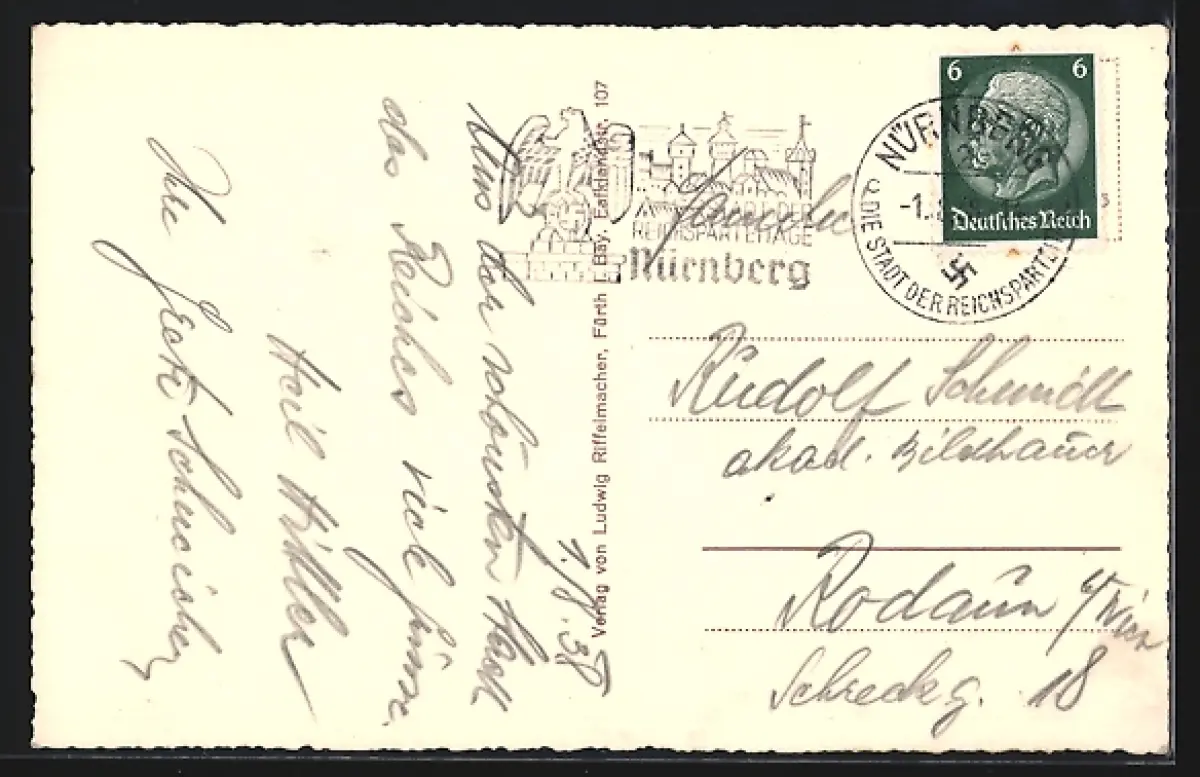 1.8.38
Aus der schönsten Stadt
des Reiches viele Grüsse.
Heil Hitler
Ihre
Verlag von Ludwig Riffelmacher, Fürth i. Bay. 107
STADT DER
REICHSPARTEITAGE
Nürnberg
NÜRNBERG 2
-1.
DIE STADT DER REICHSPARTEI
6 6
Deutsches Reich
Familie
Rudolf Schmidt
akad. Bildhauer
Rodaun b/Wien
Schreckg. 18